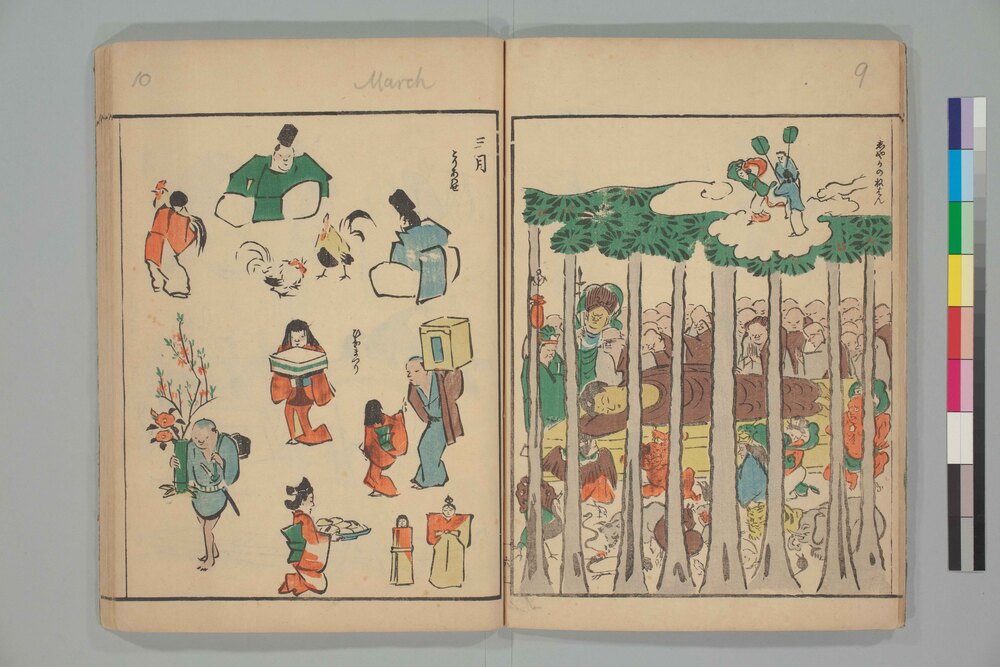 9
しやかのねはん
March
10
三月
とりあわせ
ひなまつり